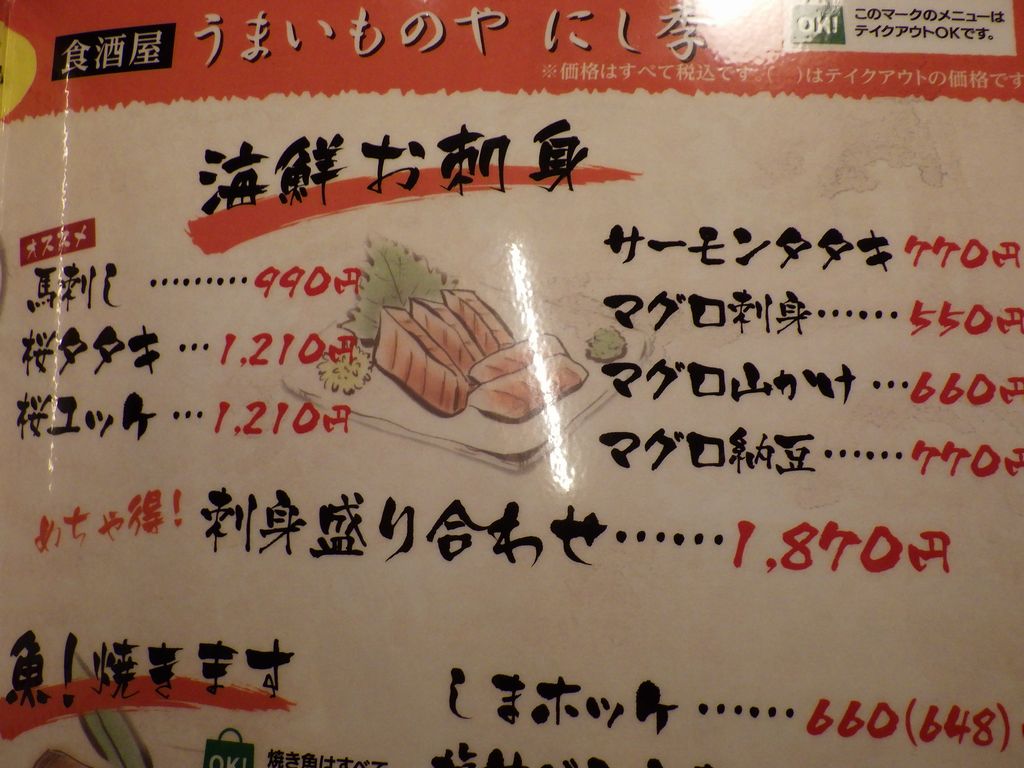 食酒屋 うまいものや にし季
OK! このマークのメニューは
テイクアウトOKです。
※価格はすべて税込です。( )はテイクアウトの価格です
海鮮お刺身
オススメ
馬刺し ………990円
桜タタキ …1,210円
桜ユッケ …1,210円
サーモンタタキ 770円
マグロ刺身……550円
マグロ山かけ …660円
マグロ納豆……770円
めちゃ得! 刺身盛り合わせ……1,870円
魚!焼きます
OK! 焼き魚はすべて
しまホッケ ……660(648)